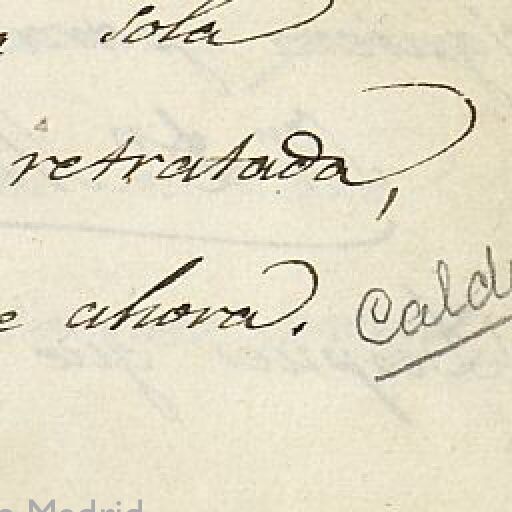 sola
retratada,
e ahora. Cald
Madrid